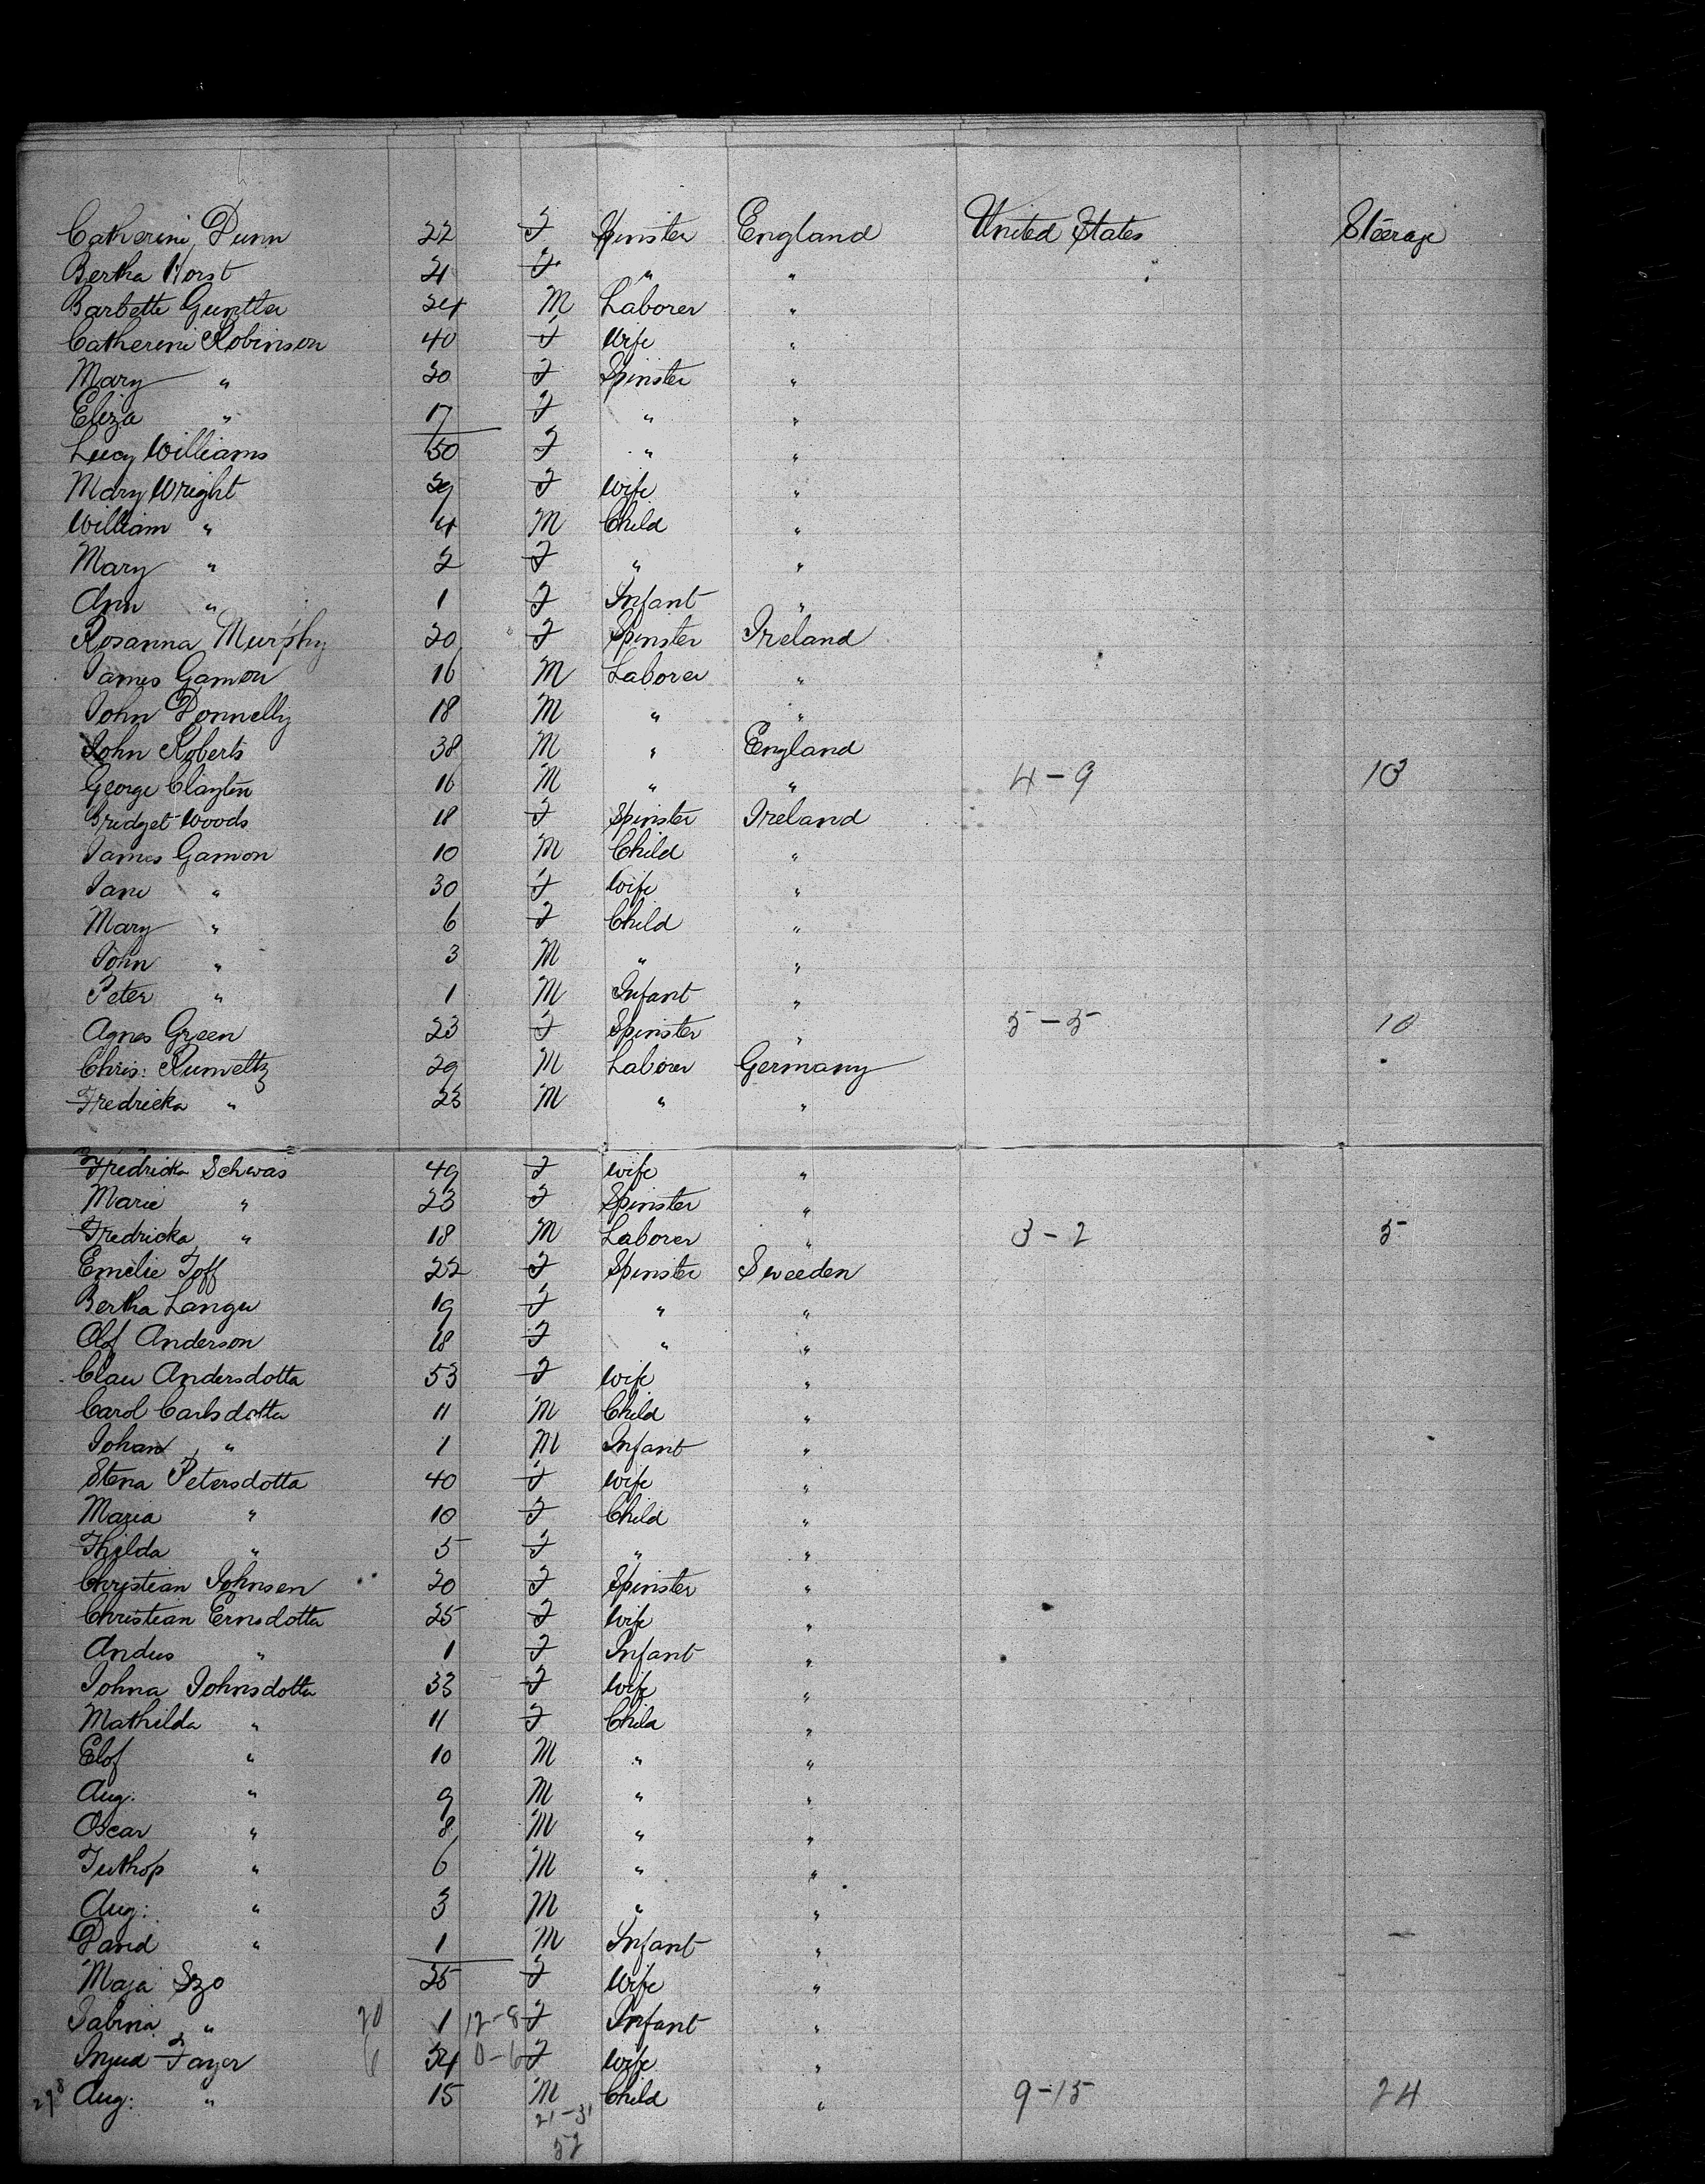 Catherine Dunn 22 F Spinster England United States Steerage
Bertha Horst 21 F " "
Barbette Guntter 24 M Laborer "
Catherine Robinson 40 F Wife "
Mary " 20 F Spinster "
Eliza " 17 F " "
Lucy Williams 50 F " "
Mary Wright 29 F Wife "
William " 4 M Child "
Mary " 2 F " "
Ann " 1 F Infant "
Rosanna Murphy 20 F Spinster Ireland
James Gamon 16 M Laborer "
John Donnelly 18 M " "
John Roberts 38 M " England
George Clayton 16 M " " 4-9 13
Bridget Woods 18 F Spinster Ireland
James Gamon 10 M Child "
Jane " 30 F Wife "
Mary " 6 F Child "
John " 3 M " "
Peter " 1 M Infant "
Agnes Green 23 F Spinster " 5-5 10
Chris: Rumeltz 29 M Laborer Germany
Fredricka " 23 M " "
Fredricka Schwas 49 F Wife "
Marie " 23 F Spinster "
Fredricka " 18 M Laborer " 3-2 5
Emelie Toff 22 F Spinster Sweeden
Bertha Langu 19 F " "
Olof Anderson 18 F " "
Clau Andersdotta 53 F Wife "
Carol Carlsdotta 11 M Child "
Johan " 1 M Infant "
Stena Petersdotta 40 F Wife "
Maria " 10 F Child "
Thilda " 5 F " "
Christian Johnsen 20 F Spinster "
Christian Ernsdotta 25 F Wife "
Andus " 1 F Infant "
Johna Johnsdotta 33 F Wife "
Mathilda " 11 F Child "
Elof " 10 M " "
Aug: " 9 M " "
Oscar " 8 M " "
Tuthop " 6 M " "
Aug: " 3 M " "
David " 1 M Infant "
Maja Szo 25 F Wife "
Sabina " 20 1 12-8 F Infant "
Fayer 6 34 0-6 F Wife "
298 Aug: " 15 M Child " 9-15 24
21-31
52